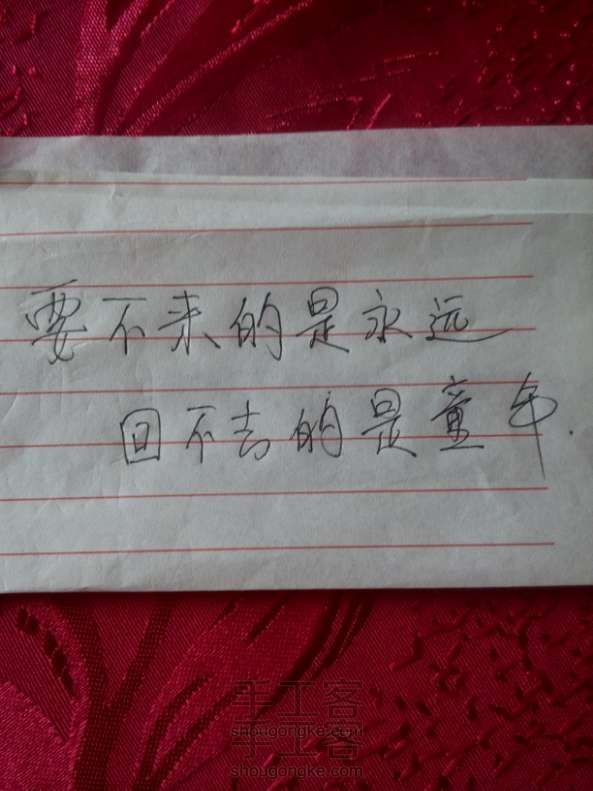 要不来的是永远
回不去的是童年.
手工客
shougongke.com
手工客
shougongke.com